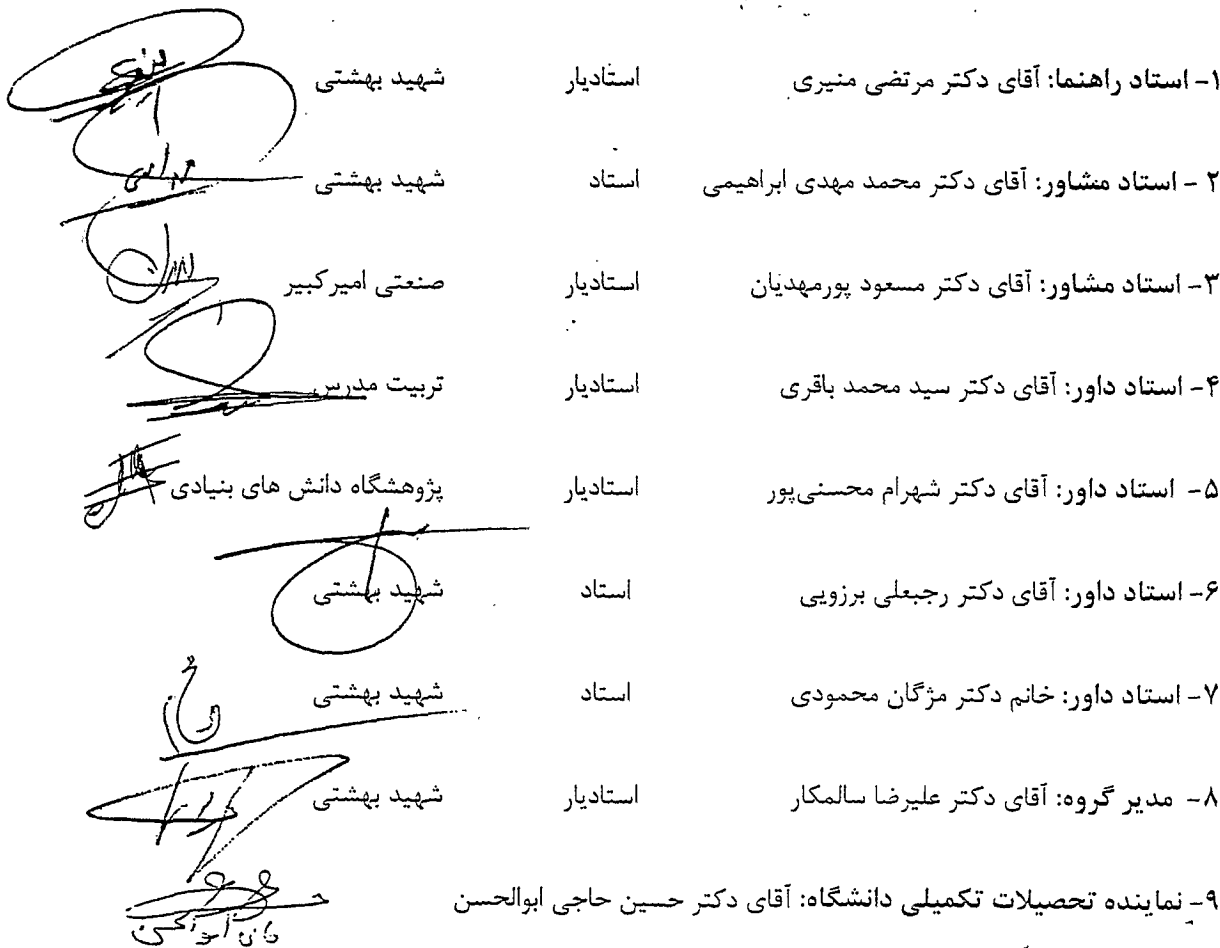 ۱- استاد راهنما: آقای دکتر مرتضی منیری استادیار شهید بهشتی
۲ - استاد مشاور: آقای دکتر محمد مهدی ابراهیمی استاد شهید بهشتی
۳- استاد مشاور: آقای دکتر مسعود پورمهدیان استادیار صنعتی امیرکبیر
۴- استاد داور: آقای دکتر سید محمد باقری استادیار تربیت مدرس
۵- استاد داور: آقای دکتر شهرام محسنی‌پور استادیار پژوهشگاه دانش های بنیادی
۶- استاد داور: آقای دکتر رجبعلی برزویی استاد شهید بهشتی
۷- استاد داور: خانم دکتر مژگان محمودی استاد شهید بهشتی
۸- مدیر گروه: آقای دکتر علیرضا سالمکار استادیار شهید بهشتی
۹- نماینده تحصیلات تکمیلی دانشگاه: آقای دکتر حسین حاجی ابوالحسن